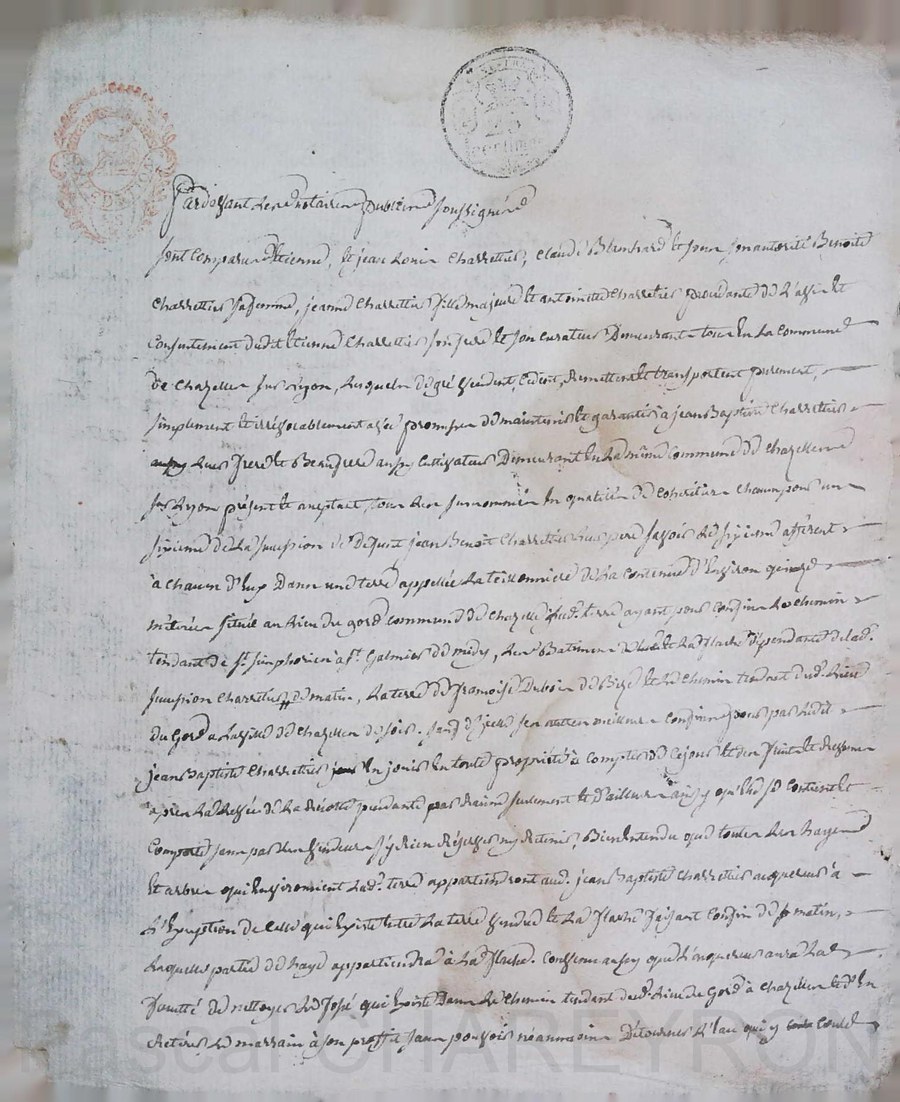 Pardevant les notaires publics soussignés
sont comparus Etienne, et jean Louis Charretier, Claude Blanchard et sous son autorité Benoite
Charretier sa femme, jeanne Charretier fille majeure et antoinette Charretier procedante de l'avis et
Consentement dudit Etienne Charretier son frere et son curateur Demeurants tous en la Commune
de Chazelles sur Lyon, lesquels de gré vendent, cedent, remettent et transportent purement,
simplement et irrévocablement avec promesse de maintenir et garantir à jean Baptiste Charretier
leur frere et Beaufrere aussy cultivateur Demeurant en la même commune de Chazelles
sur Lyon présent et acceptant, tous les surnommés en qualité de cohéritiers chacun pour un
sixieme de la succession de defunt jean Benoit Charretier leur pere savoir le sixieme afferent
à chacun d'eux Dans une terre appellée La teissonniere de la contenue d'environ quinze
méterées située au lieu du gord commune de Chazelle lad. terre ayant pour confins le chemin
tendant de St. simphorien à St. Galmier de midy, les Batimens et la flache dépendants de lad.
succession Charretier de matin, la terre de françoise Dubois de Bize et le chemin tendant dud. lieu
du Gord a la ville de Chazelles de soir, sauf d'iceux ses autres meilleurs confins pour par ledit
jean Baptiste Charretier en jouir en toute propriété à compter de ce jour et des fruits et revenus
après la levée de la récolte pendante par racine seulement et d'ailleurs ainsy qu'elle se contient et
Comporte sans par les vendeurs s'y rien réserver ny retenir, Bien entendu que toutes les hayes
et arbres qui environnent lad. terre appartiendront aud. jean Baptiste Charretier acquereur à
L'Exception de celle qui existe entre la terre vendue et la flache faisant confin de matin,
laquelle partie de haye appartiendra à la flache. Consentent aussy que l'acquereur aura la
faculté de nettoyer le fossé qui existe Dans le chemin tendant dud. lieu du Gord à Chazelles et d'en
retirer le marrain à son proffit sans pouvoir néanmoins Détourner l'eau qui y coule
Pascal CHAREYRON